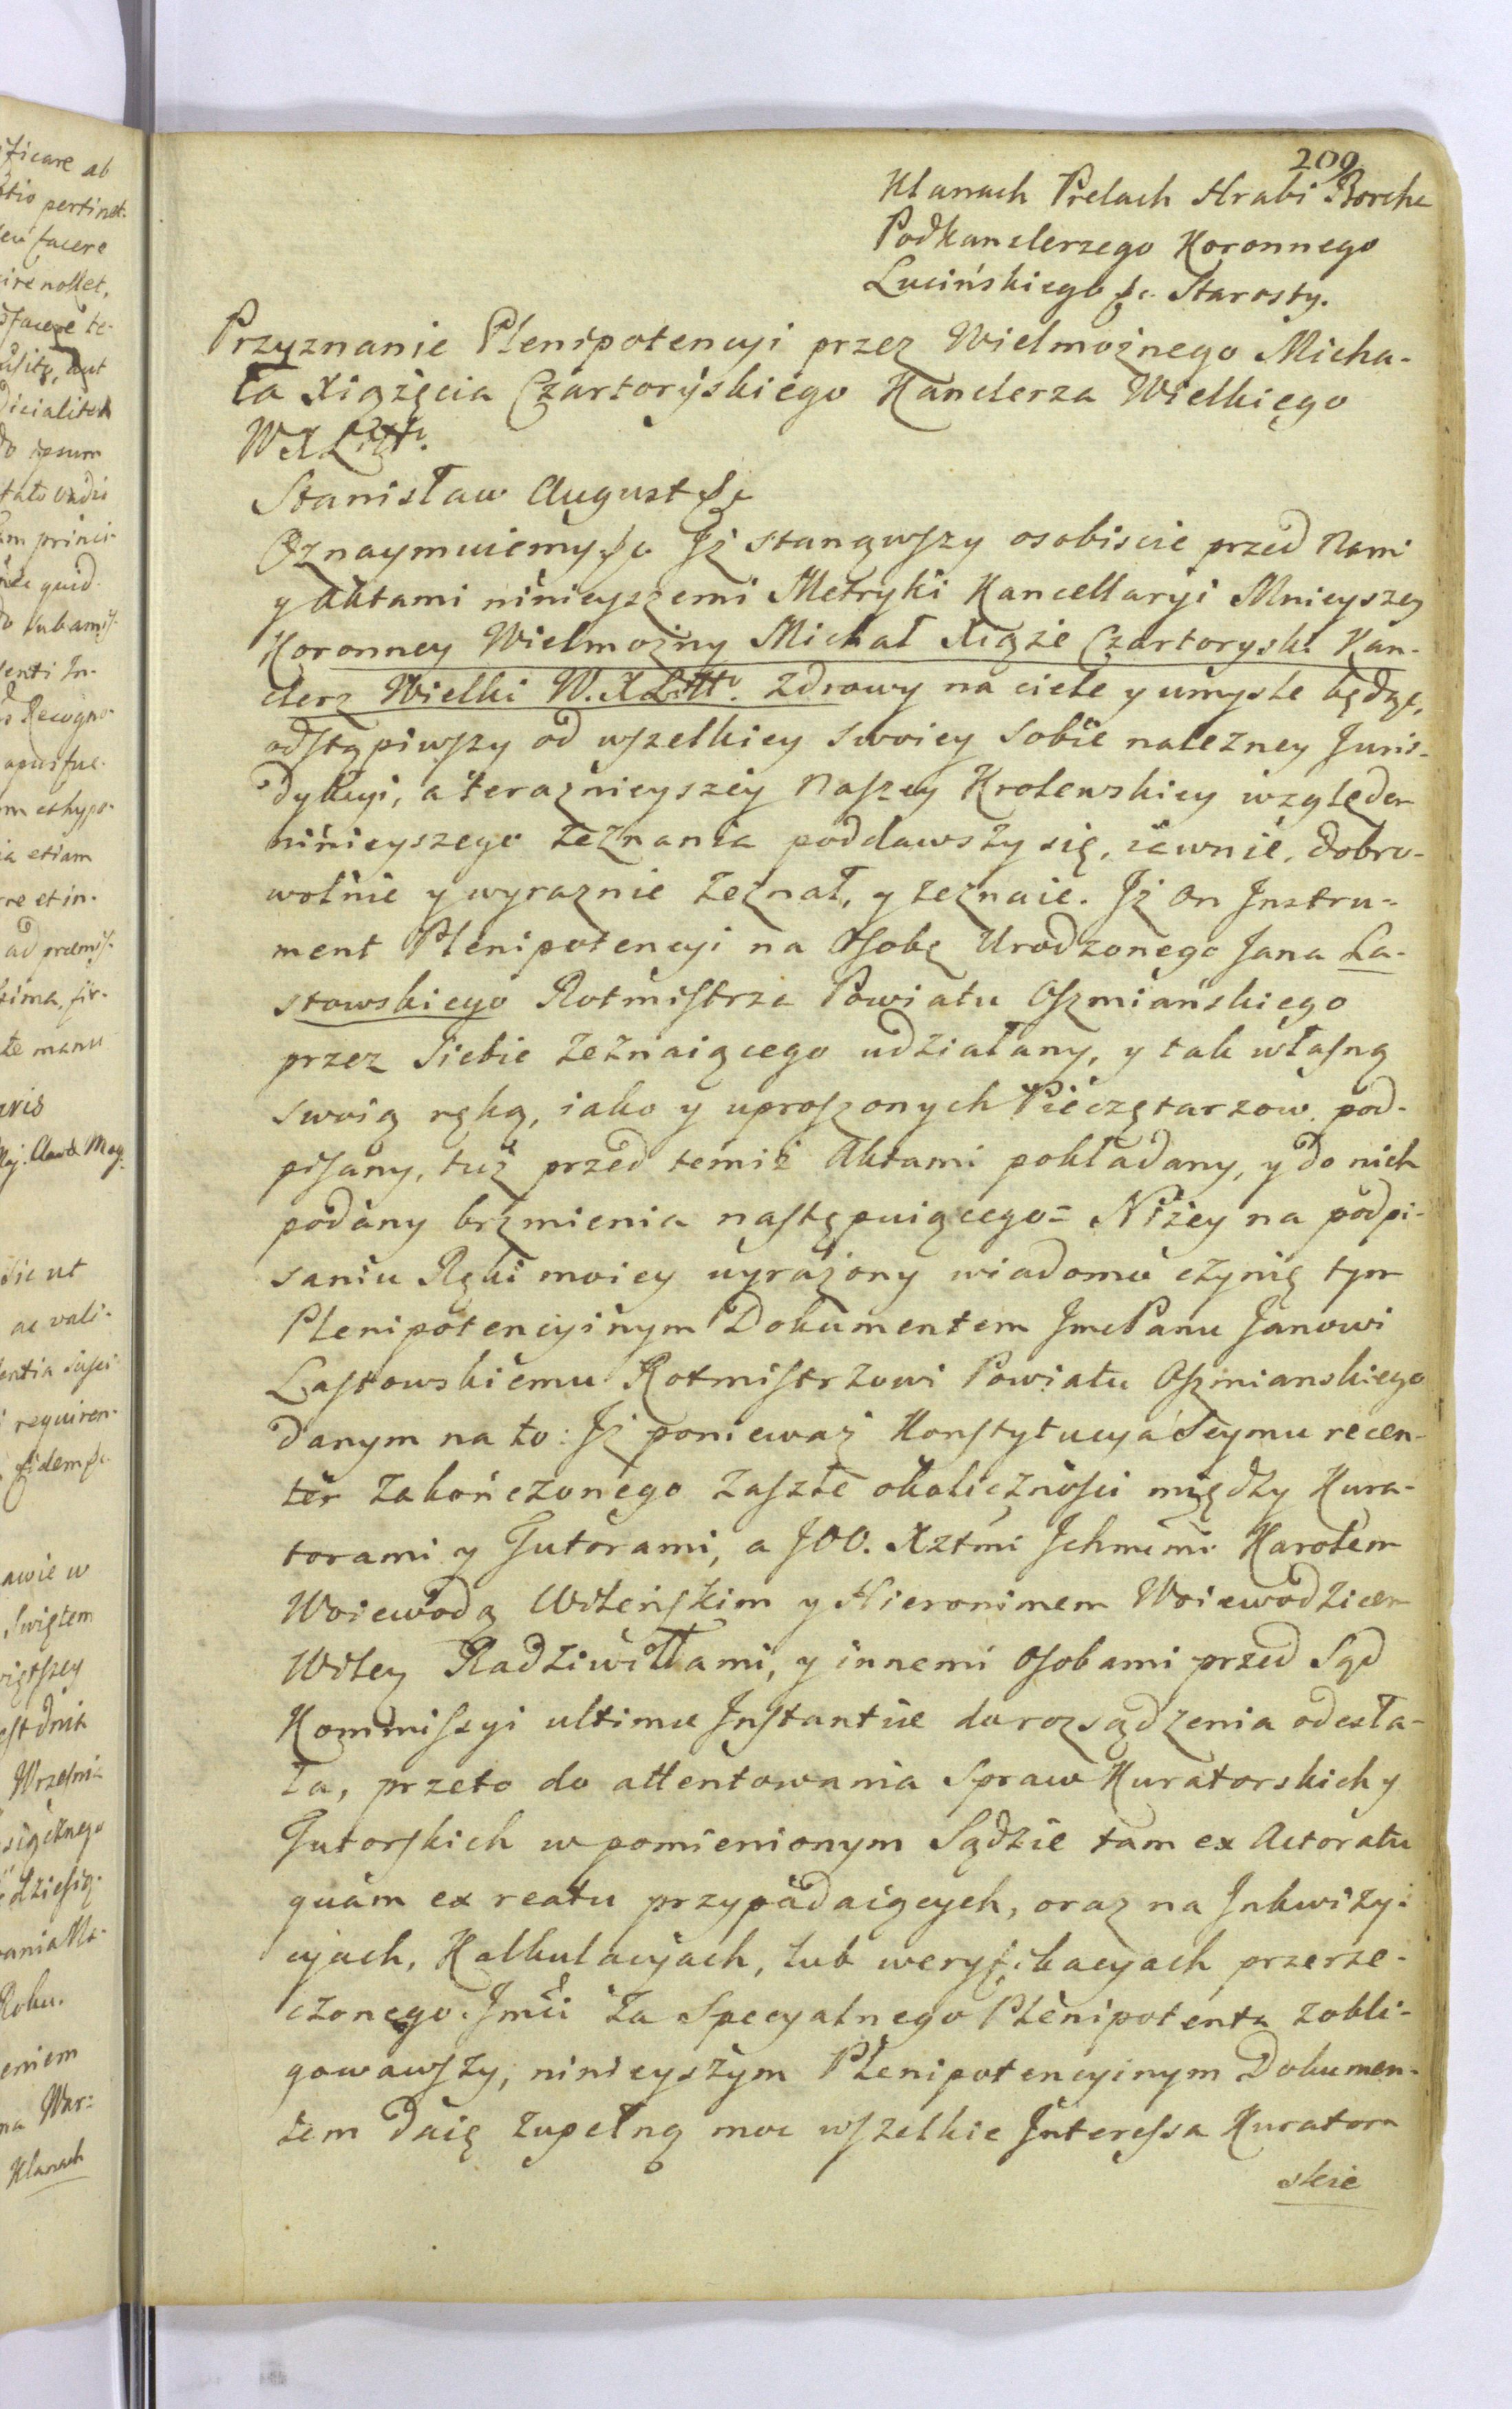 209
Klanach Pretach Hrabi Borche
Podkanclerzego Koronnego
Lucińskiego &c. Starosty.
Przyznanie Plenipotencyi przez Wielmożnego Micha-
ła Xiążęcia Czartoryskiego Kanclerza Wielkiego
W X Litt.
Stanisław August &c
Oznaymuiemy &c. Jż stanąwszy osobiscie przed Nami
y Aktami ninieyszemi Metryki Kancellaryi Mnieyszey
Koronney Wielmożny Michał Xiąże Czartoryski Kan-
clerz Wielki W. X Litt. zdrowy na ciele y umysle będąc,
odstąpiwszy od wszelkiey swoiey sobie nalezney Juris-
dykcyi, a teraznieyszey Naszey Krolewskiey względem
ninieyszego zeznania poddawszy się, iawnie, dobro-
wolnie y wyraznie zeznał, y zeznaie. Jż on Jnstru-
ment Plenipotencyi na Osobę Urodzonego Jana La-
stowskiego Rotmistrza Powiatu Oszmiańskiego
przez siebie zeznaiącego udziałany, y tak własną
swoią ręką, iako y uproszonych Pieczętarzow pod-
pisany, tuż przed temiż Aktami pokładany, y do nich
podany brzmienia następuiącego= Niżey na podpi-
saniu Ręki moiey wyrażony wiadomo czynię tym
Plenipotencyinym Dokumentem JmcPanu Janowi
Lastowskiemu Rotmistrzowi Powiatu Oszmianskiego
danym na to: Jż ponieważ Konstytucya Seymu recen-
ter zakończonego zaszłe okoliczności między Kura-
torami y Tutorami, a JOO. Xztmi Jchmcmi Karolem
Woiewodą Wileńskim y Hieronimem Woiewodzicem
Wiley Radziwiłłami, y innemi osobami przed Sąd
Kommissyi ultimæ Jnstantiæ do rozsądzenia odesła-
ła, przeto do attentowania Spraw Kuratorskich y
Tutorskich w pomienionym Sądzie tam ex Actoratu
quam ex reatu przypadaiących, oraz na Jnkwizy-
cyach, Kalkulacyach, lub weryfikacyach przerze-
czonego Jmci za Specyalnego Plenipotenta zobli-
gowawszy, ninieyszym Plenipotencyinym Dokumen-
tem daię zupełną moc wszelkie Jnteressa Kurator-
skie